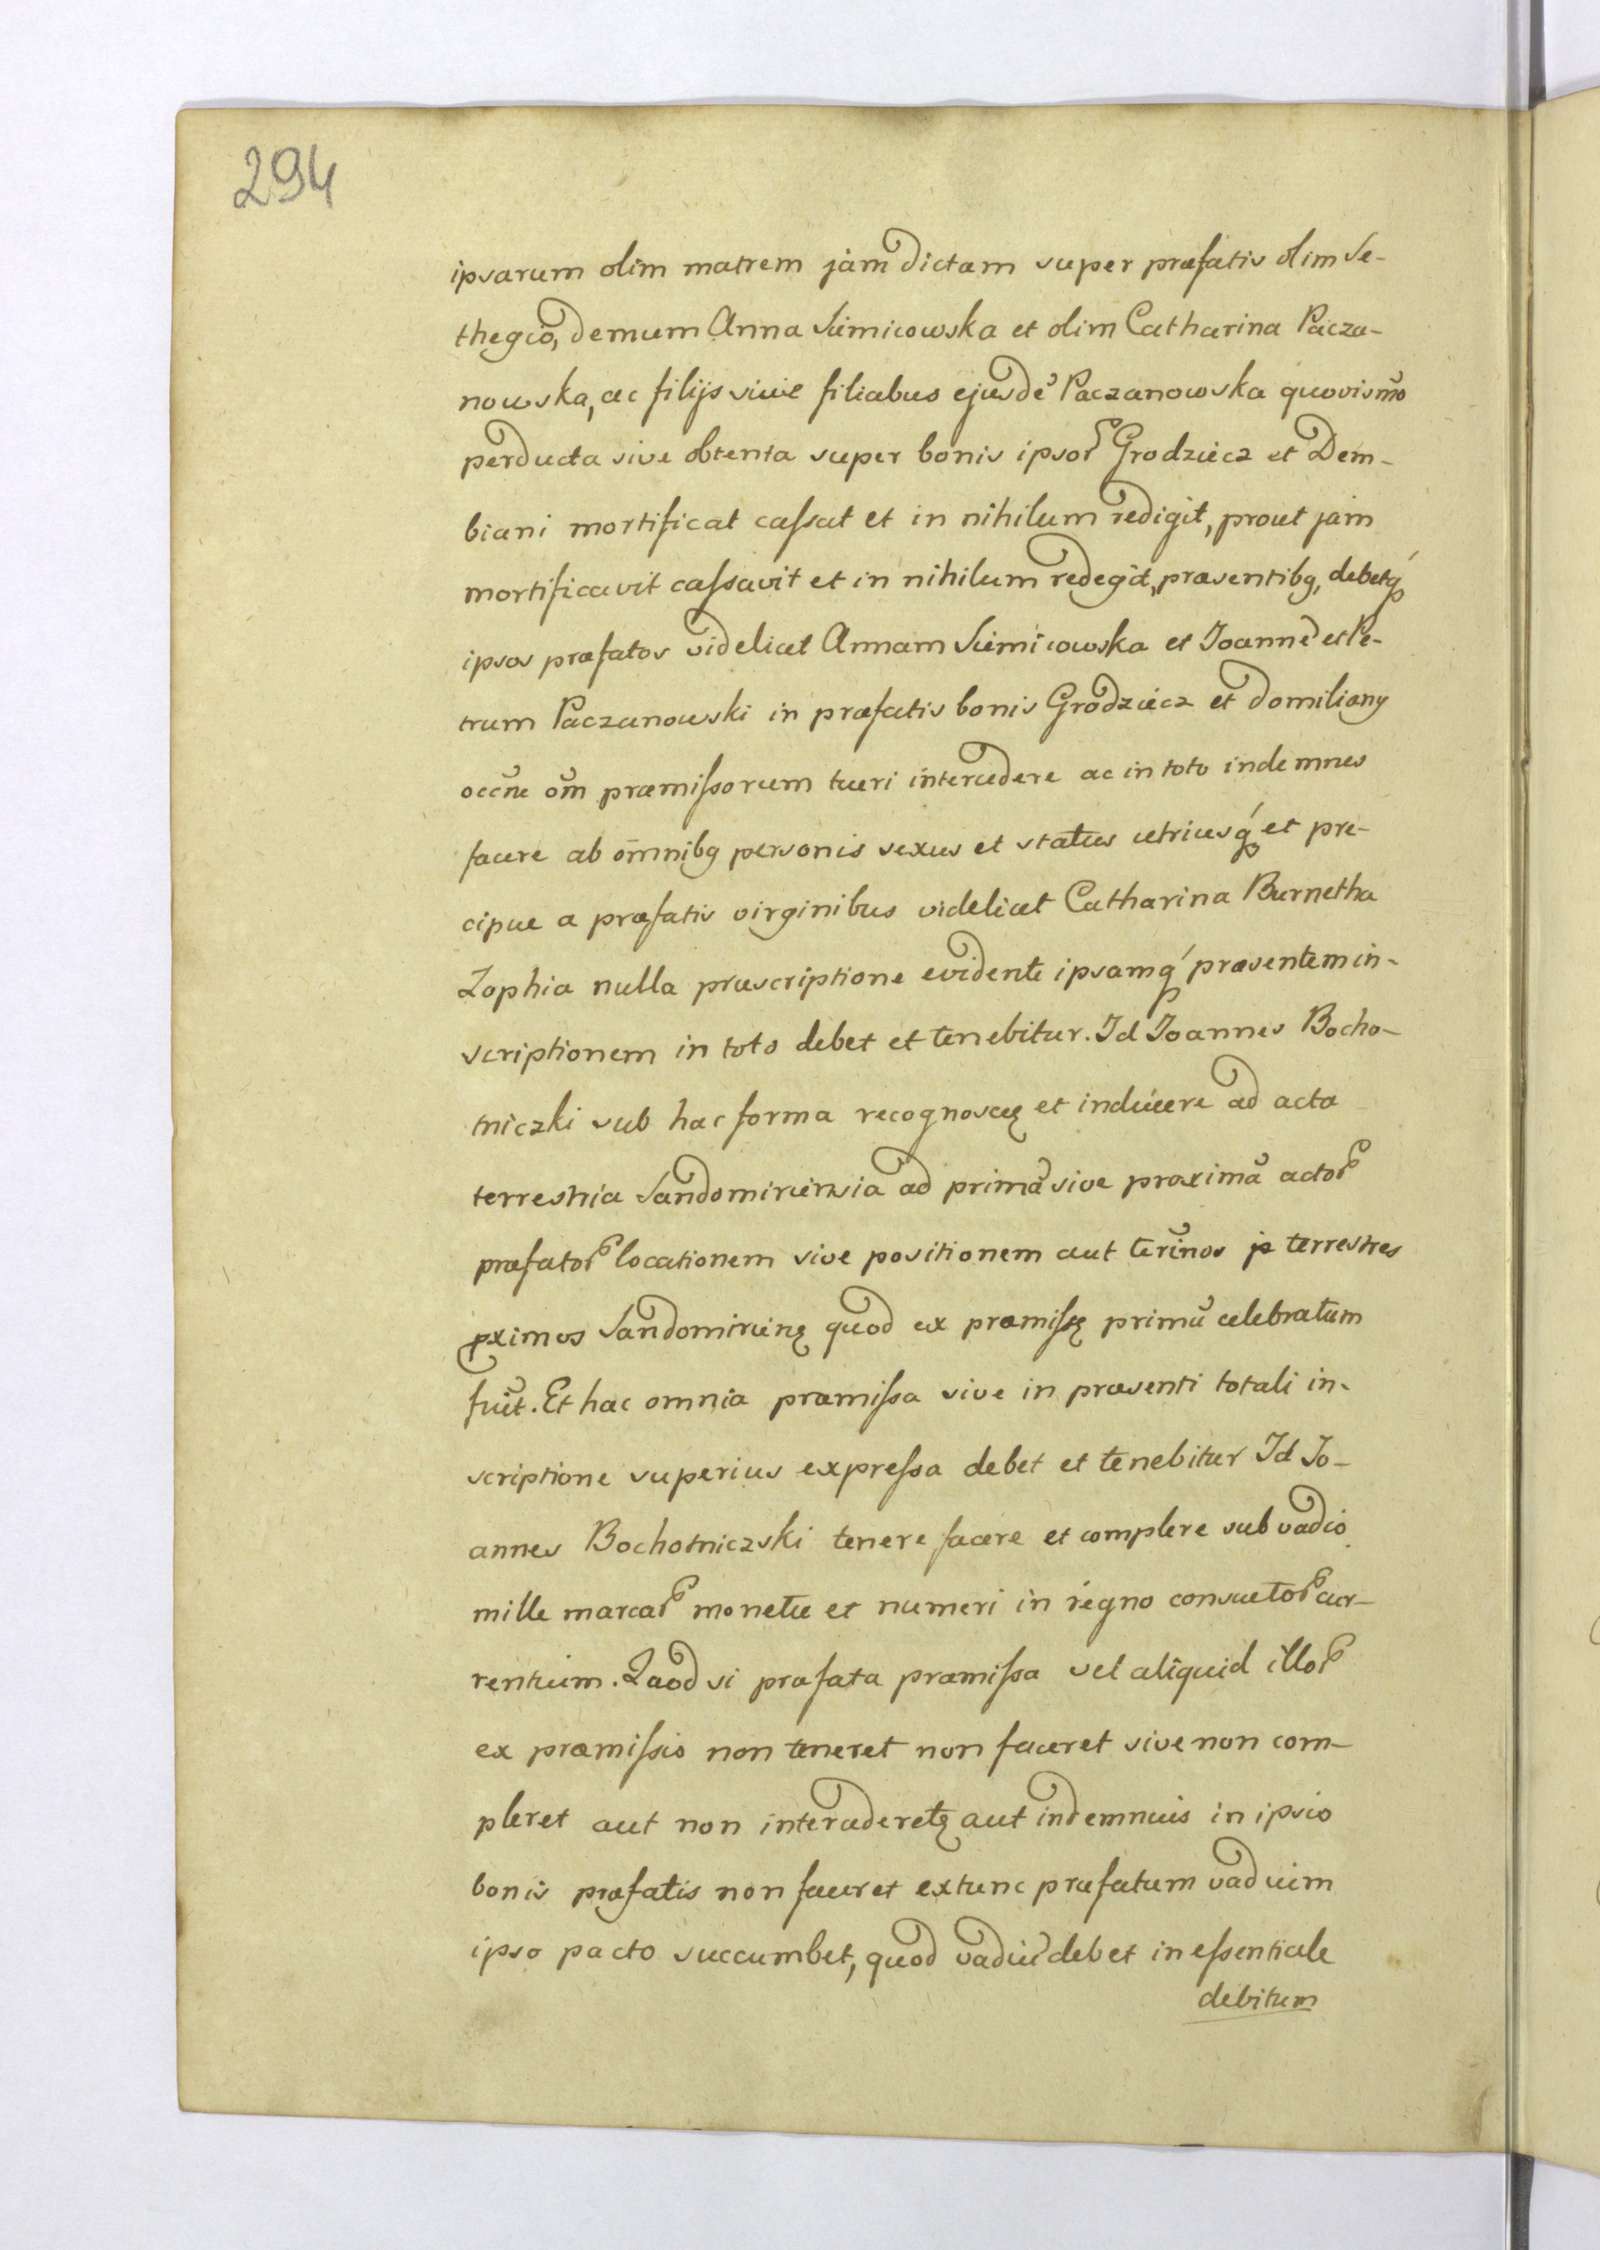 294
ipsarum olim matrem jam dictam super præfatis olim Se-
thegio, demum Anna Siemicowska et olim Catharina Pacza-
nowska, ac filijs sive filiabus ejusdē Paczanowska quovismō
perducta sive obtenta super bonis ipsoꝝ Grodziecz et Dem-
biani mortificat caſsat et in nihilum redigit, prout jam
mortificavit caſsavit et in nihilum redegit, præsentibꝫ, debetqꝫ
ipsos præfatos videlicet Annam Siemicowska et Joannē et Pe-
trum Paczanowski in præfatis bonis Grodziecz et domiliany
occne om̄ præmiſsorum tueri intercedere ac in toto indemnes
facere ab om̄nibꝫ personis sexus et status utriusqꝫ et pre-
cipue a præfatis virginibus videlicet Catharina Burnetha
Zophia nulla præscriptione evidente ipsamqꝫ præsentem in-
scriptionem in toto debet et tenebitur. Id Joannes Bocho-
tniczki sub hac forma recognoscę et inducere ad acta
terrestria Sandomiriensia ad primā sive proximā actoꝝ
præfatoꝝ locationem sive positionem aut term̄inos p terrestres
ꝓximos Sandomirienę quod ex præmiſsę primū celebratum
fuit. Et hac omnia præmiſsa sive in præsenti totali in-
scriptione superius expreſsa debet et tenebitur Id Jo-
annes Bochotniczski tenere facere et complere sub vadio
mille marcaꝝ monetæ et numeri in regno consuetoꝝ cur-
rentium. Quod si præfata præmiſsa vel aliquid illoꝝ
ex præmiſsis non teneret non faceret sive non com-
pleret aut non intercederetę aut indemnuis in ipsis
bonis præfatis non faceret extunc præfatum vadium
ipso pacto succumbet, quod vadiū debet in eſsentiale
debitum